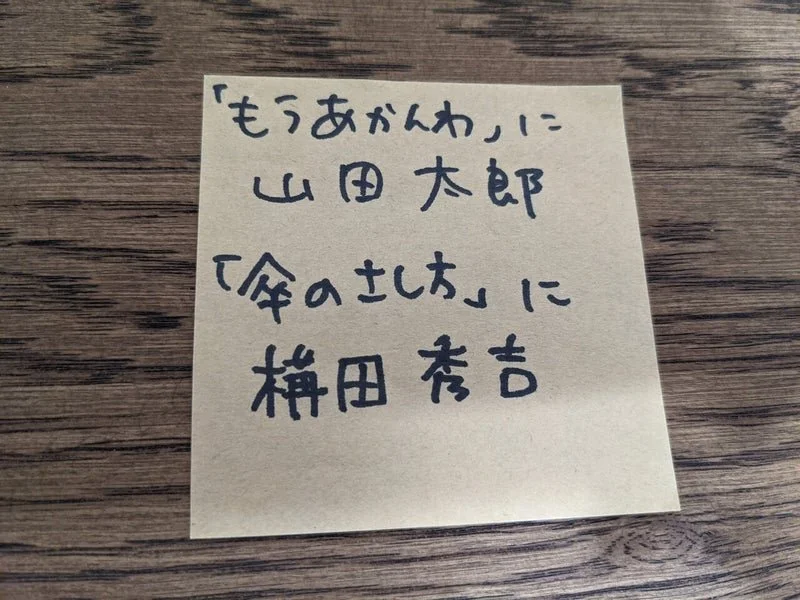 「もうあかんわ」に
山田太郎
「傘のさし方」に
構田秀吉